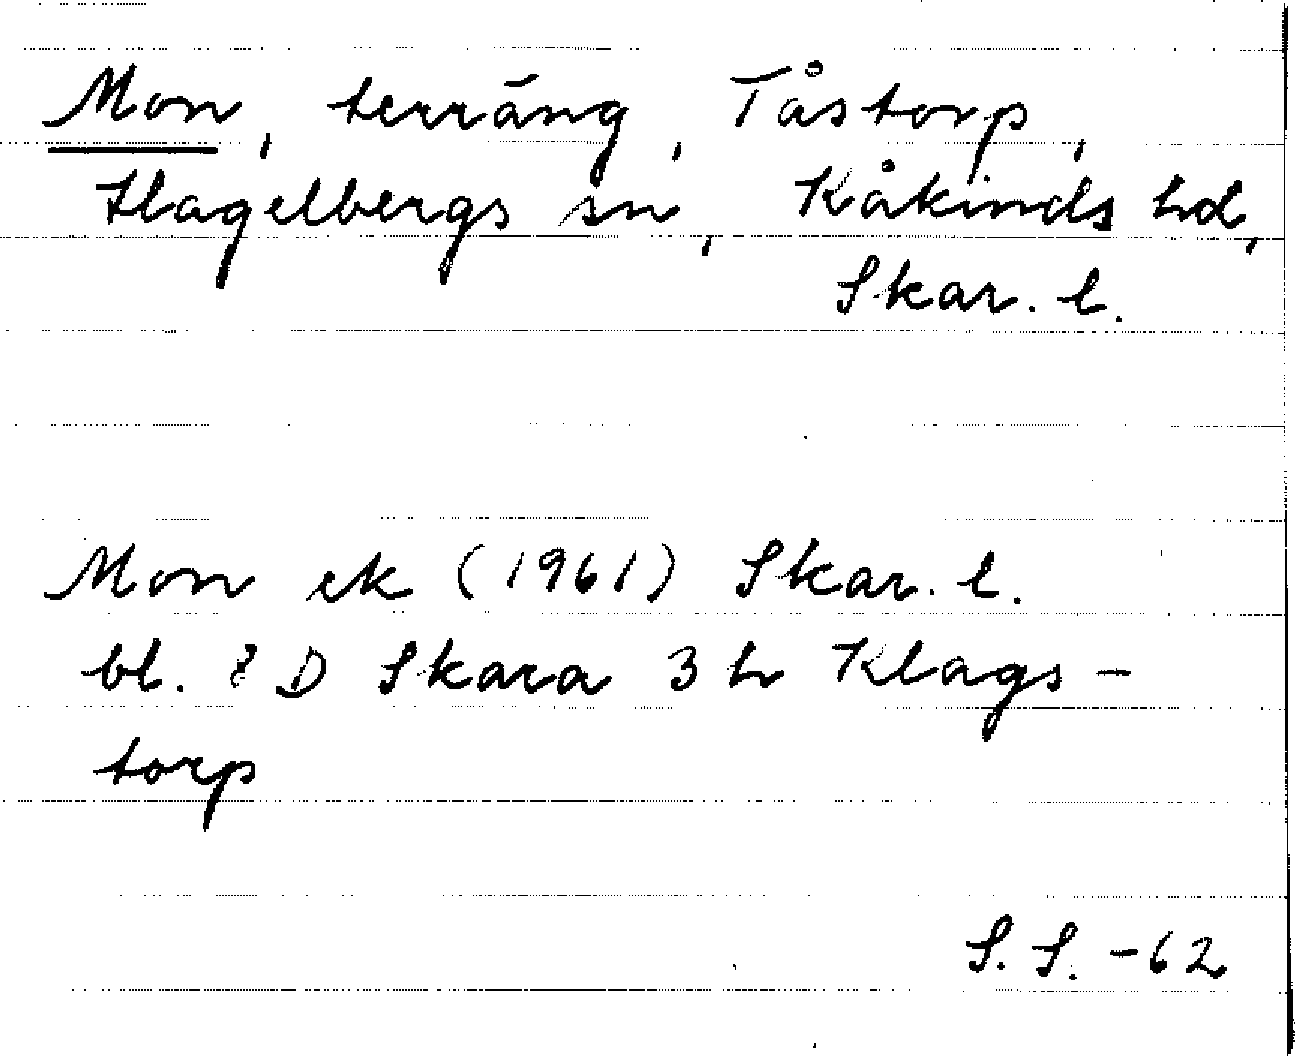 Mon, terräng, Tåstorp,
Hagelbergs sn, Kåkinds hd,
Skar. l.
Mon ek (1961) Skar. l.
bl. 8 D Skara 3 h Klags-
torp
S. S. -62